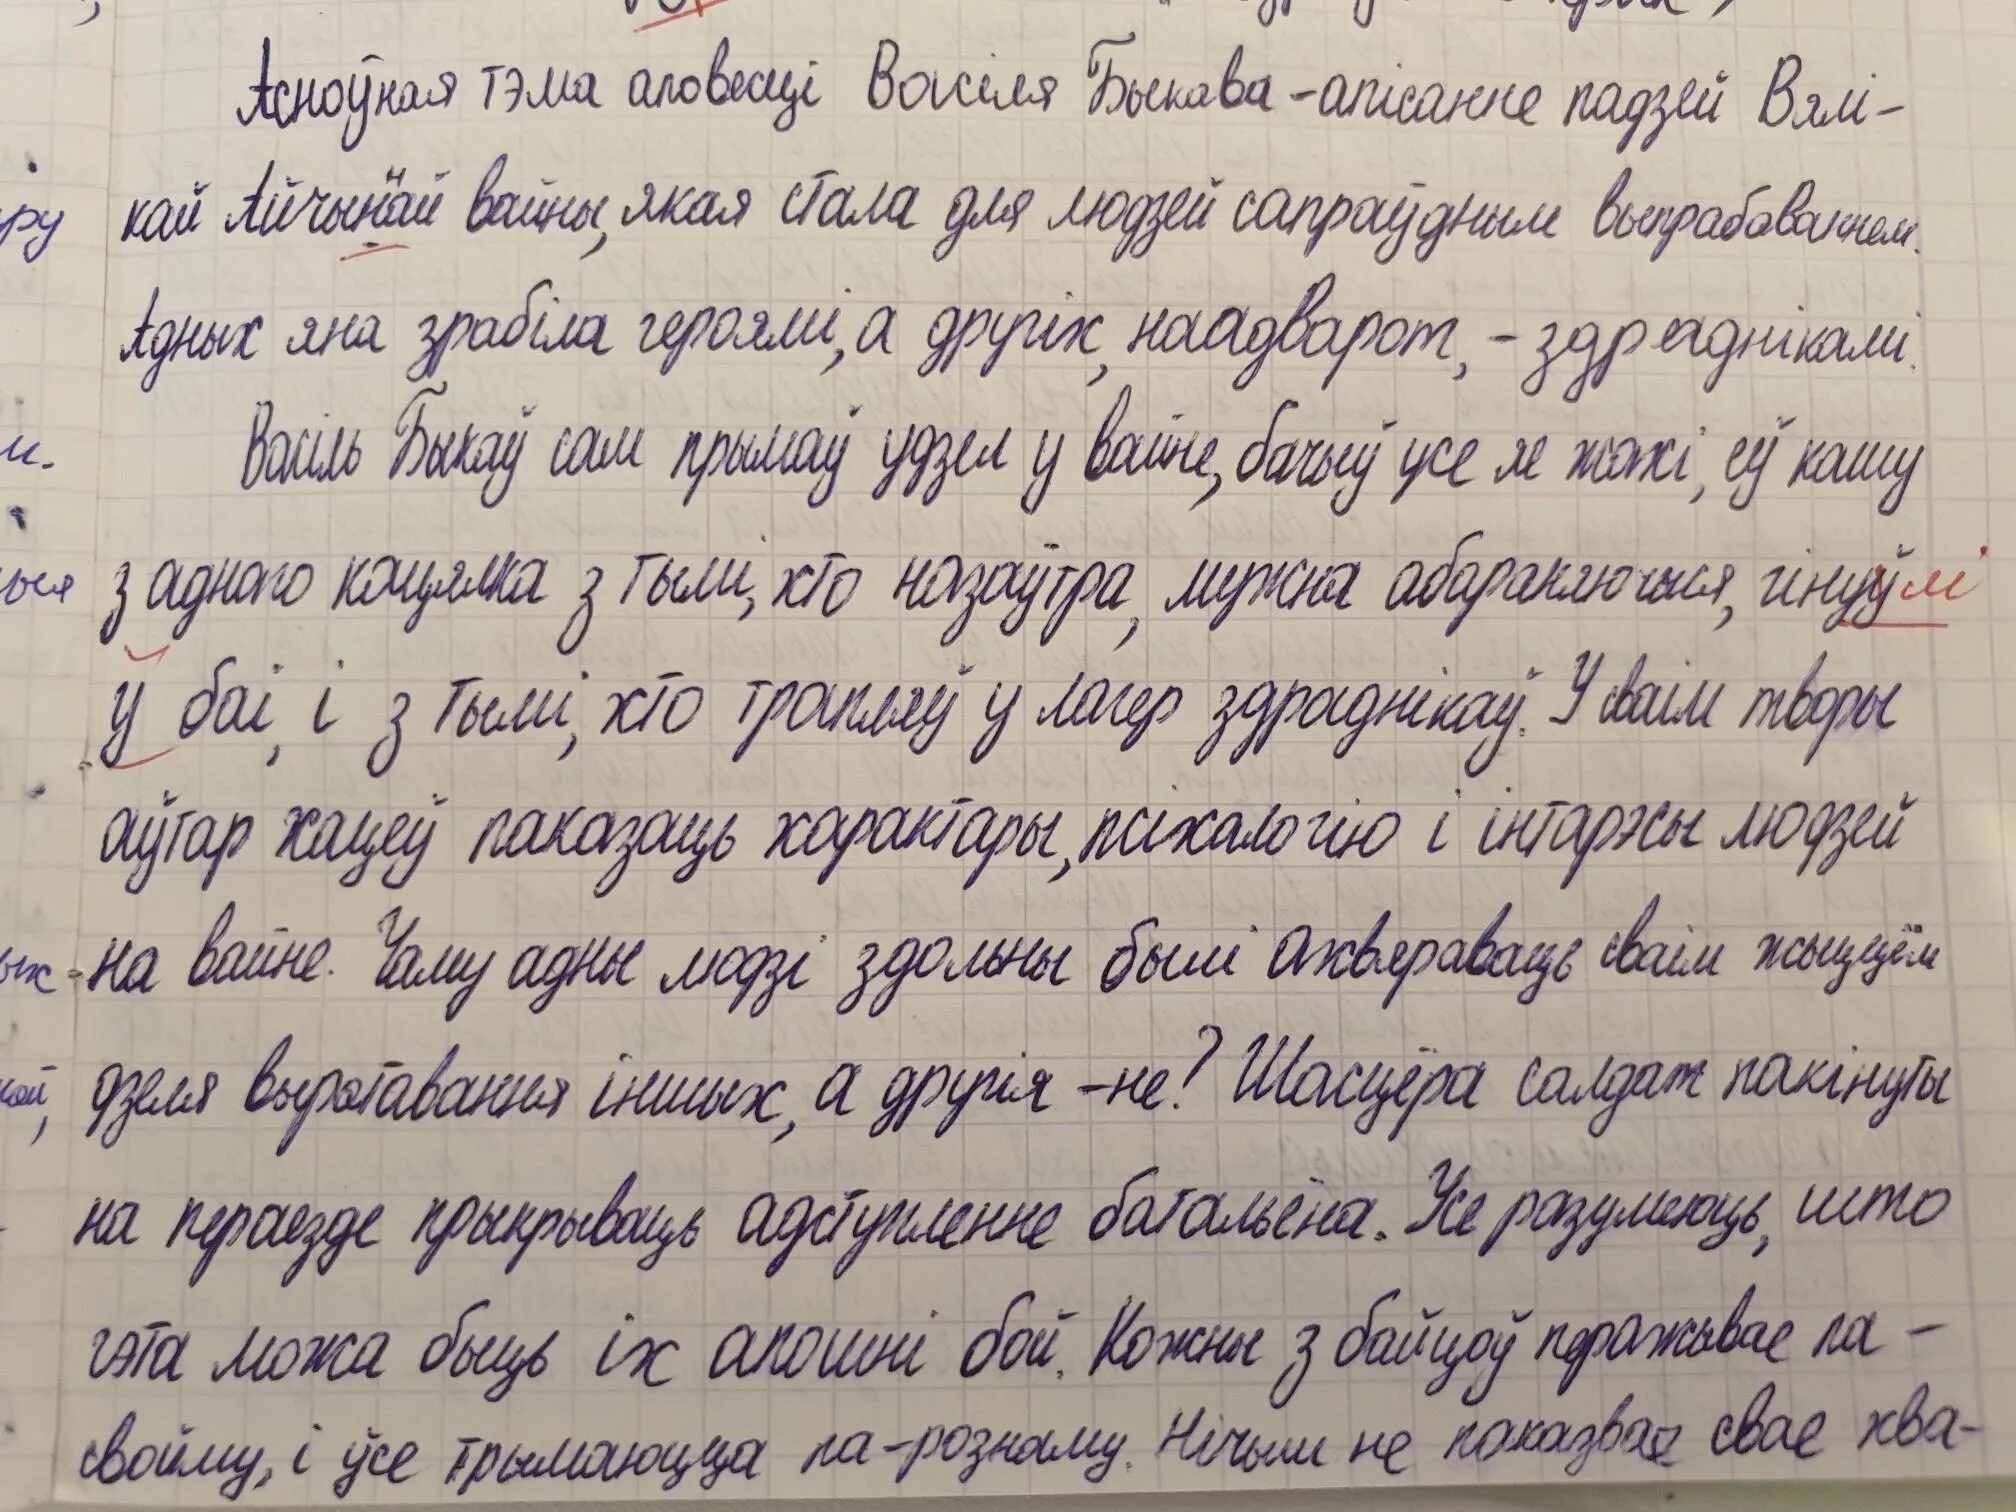 Асноўная тэма аповесці Васіля Быкава - апісанне падзей Вялі-
кай Айчыннай вайны, якая стала для людзей сапраўдным выпрабаваннем.
Адных яна зрабіла героямі, а другіх, наадварот, - здраднікамі.
Васіль Быкаў сам прымаў удзел у вайне, бачыў усе яе жахі, еў кашу
з аднаго кацялка з тымі, хто назаўтра, мужна абараняючыся, гінуў
ў баі, і з тымі, хто трапляў у лагер здраднікаў. У сваім творы
аўтар хацеў паказаць характары, псіхалогію і інтарэсы людзей
на вайне. Чаму адны людзі здольны былі ахвяраваць сваім жыццём
дзеля выратавання іншых, а другія - не? Шасцёра салдат пакінуты
на пераездзе прыкрываць адступленне батальёна. Усе разумеюць, што
гэта можа быць іх апошні бой. Кожны з байцоў перажывае па-
свойму, і ўсе трымаюцца па-рознаму. Нічым не паказвае свае хва-
ру
ыя
ых
кой,